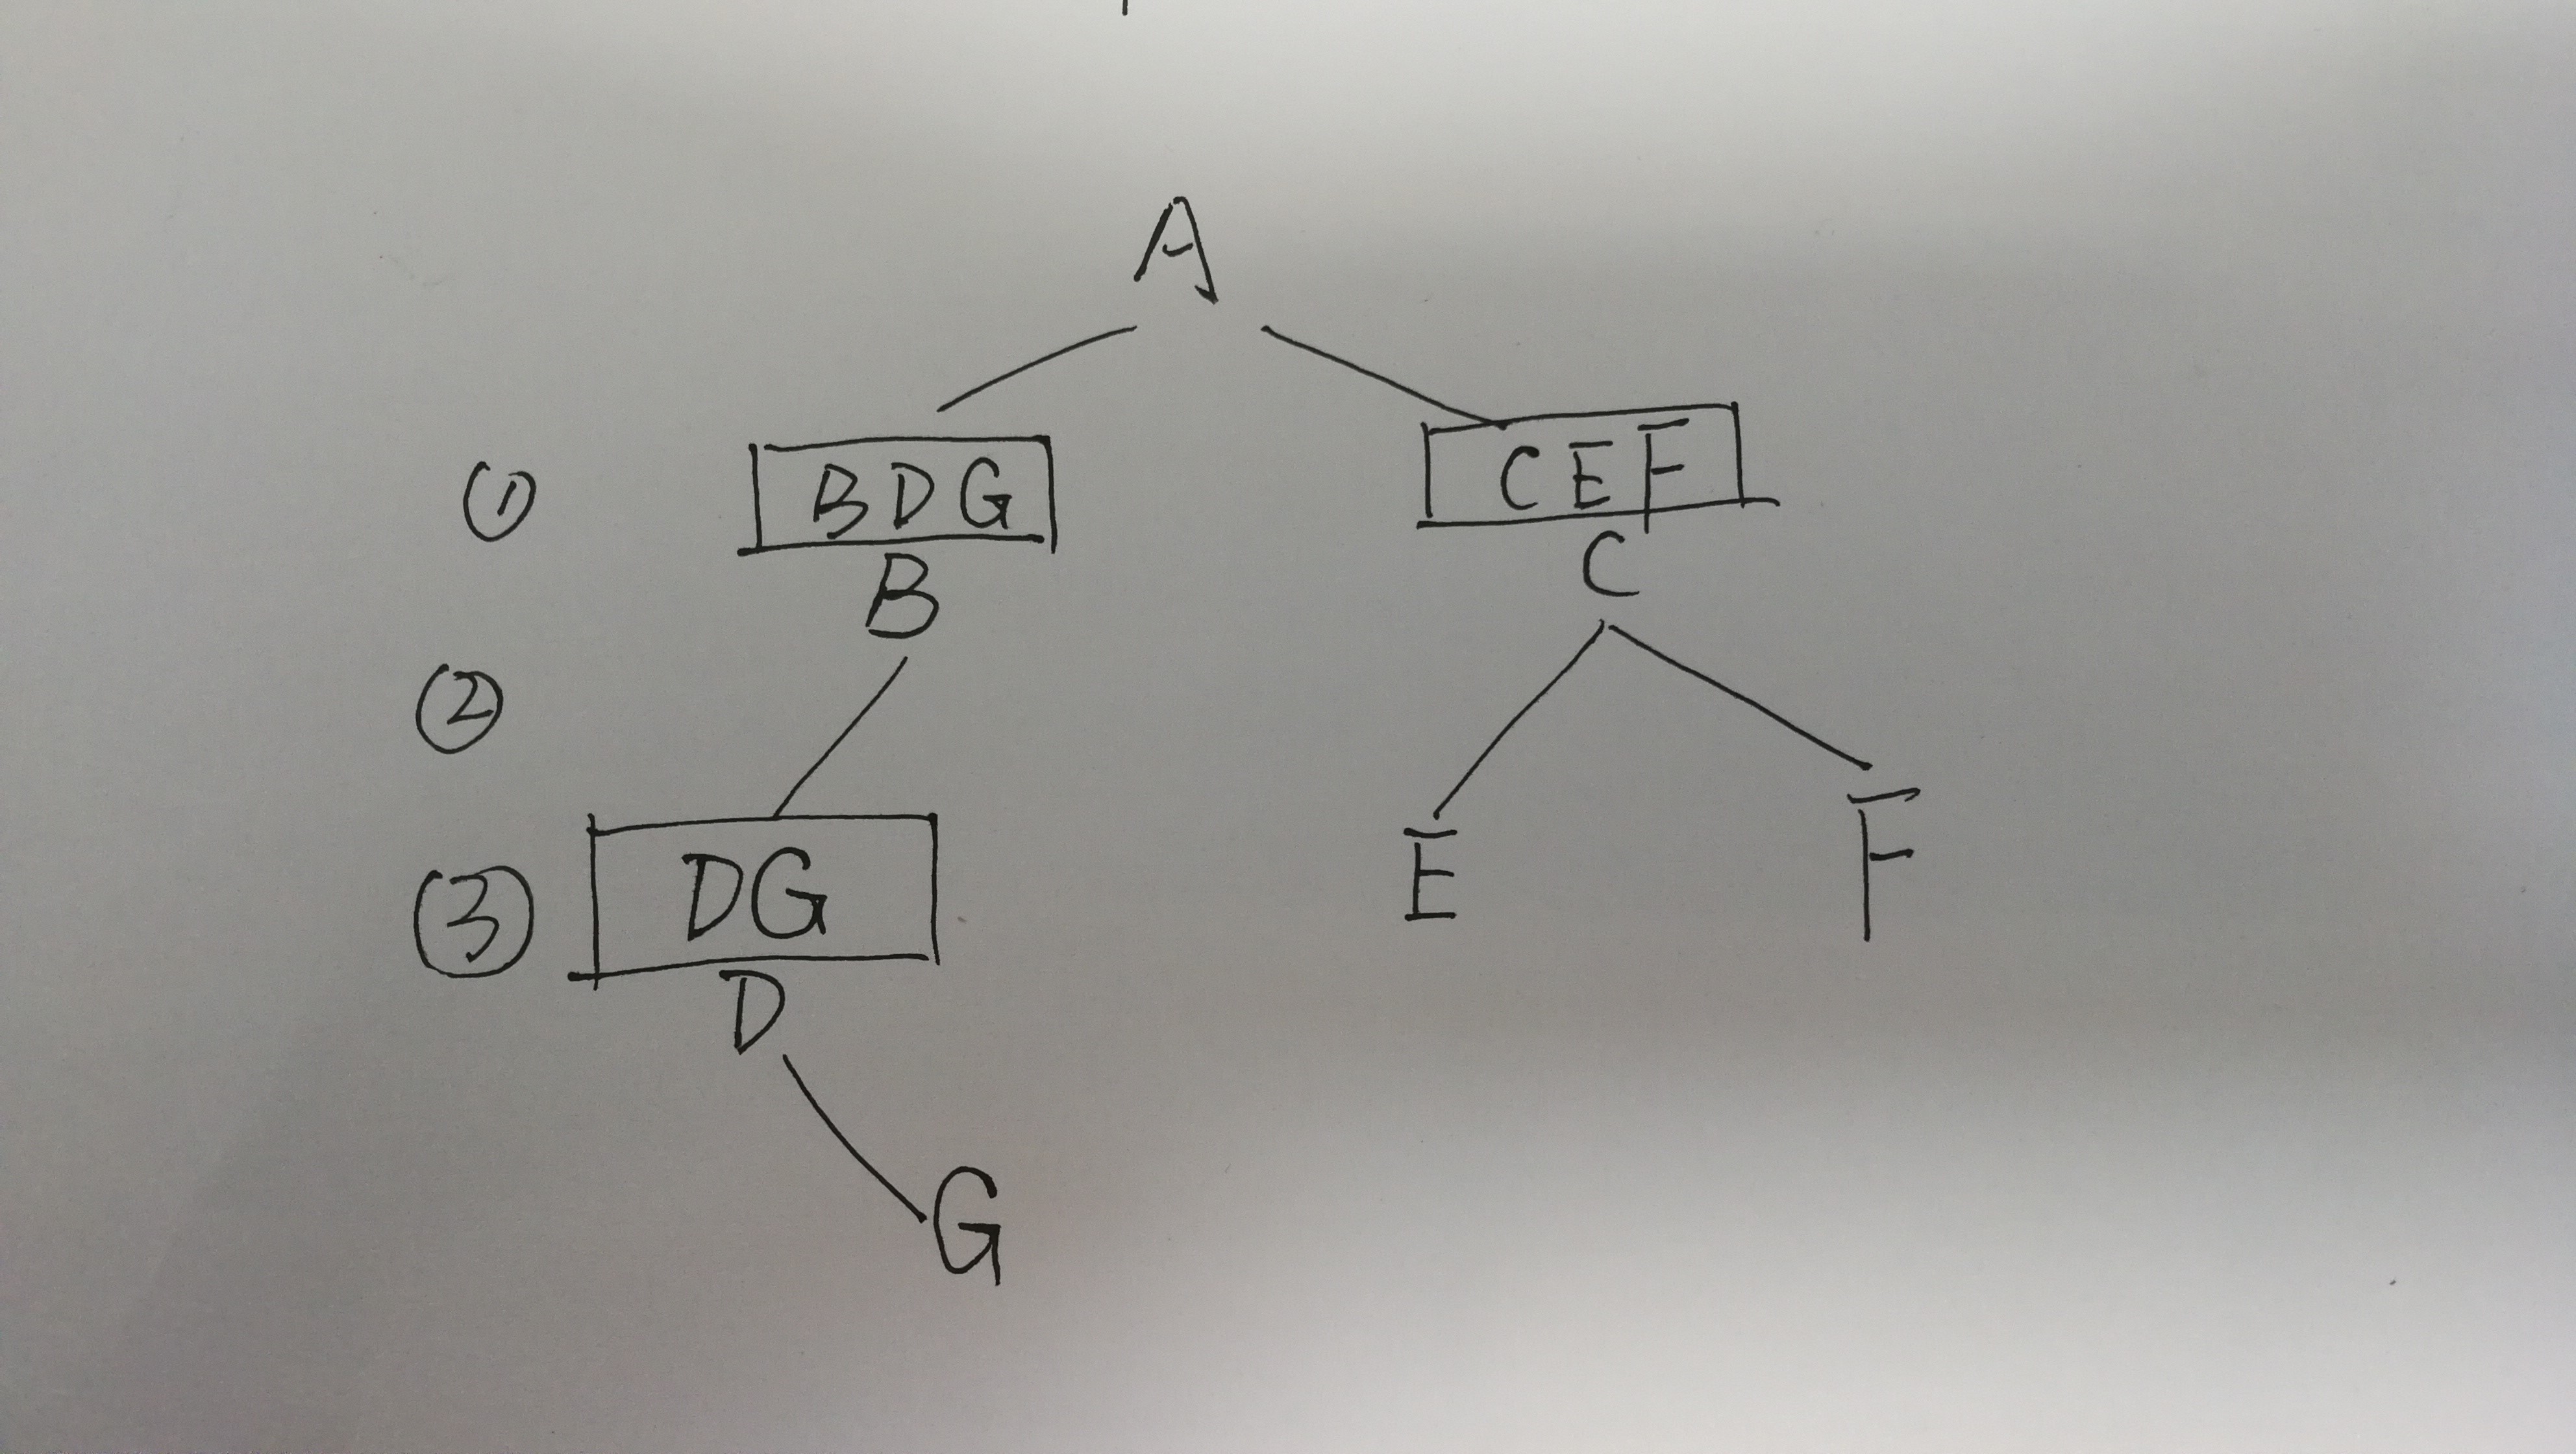 A
① BDG CEF
B C
②
③ DG E F
D
G